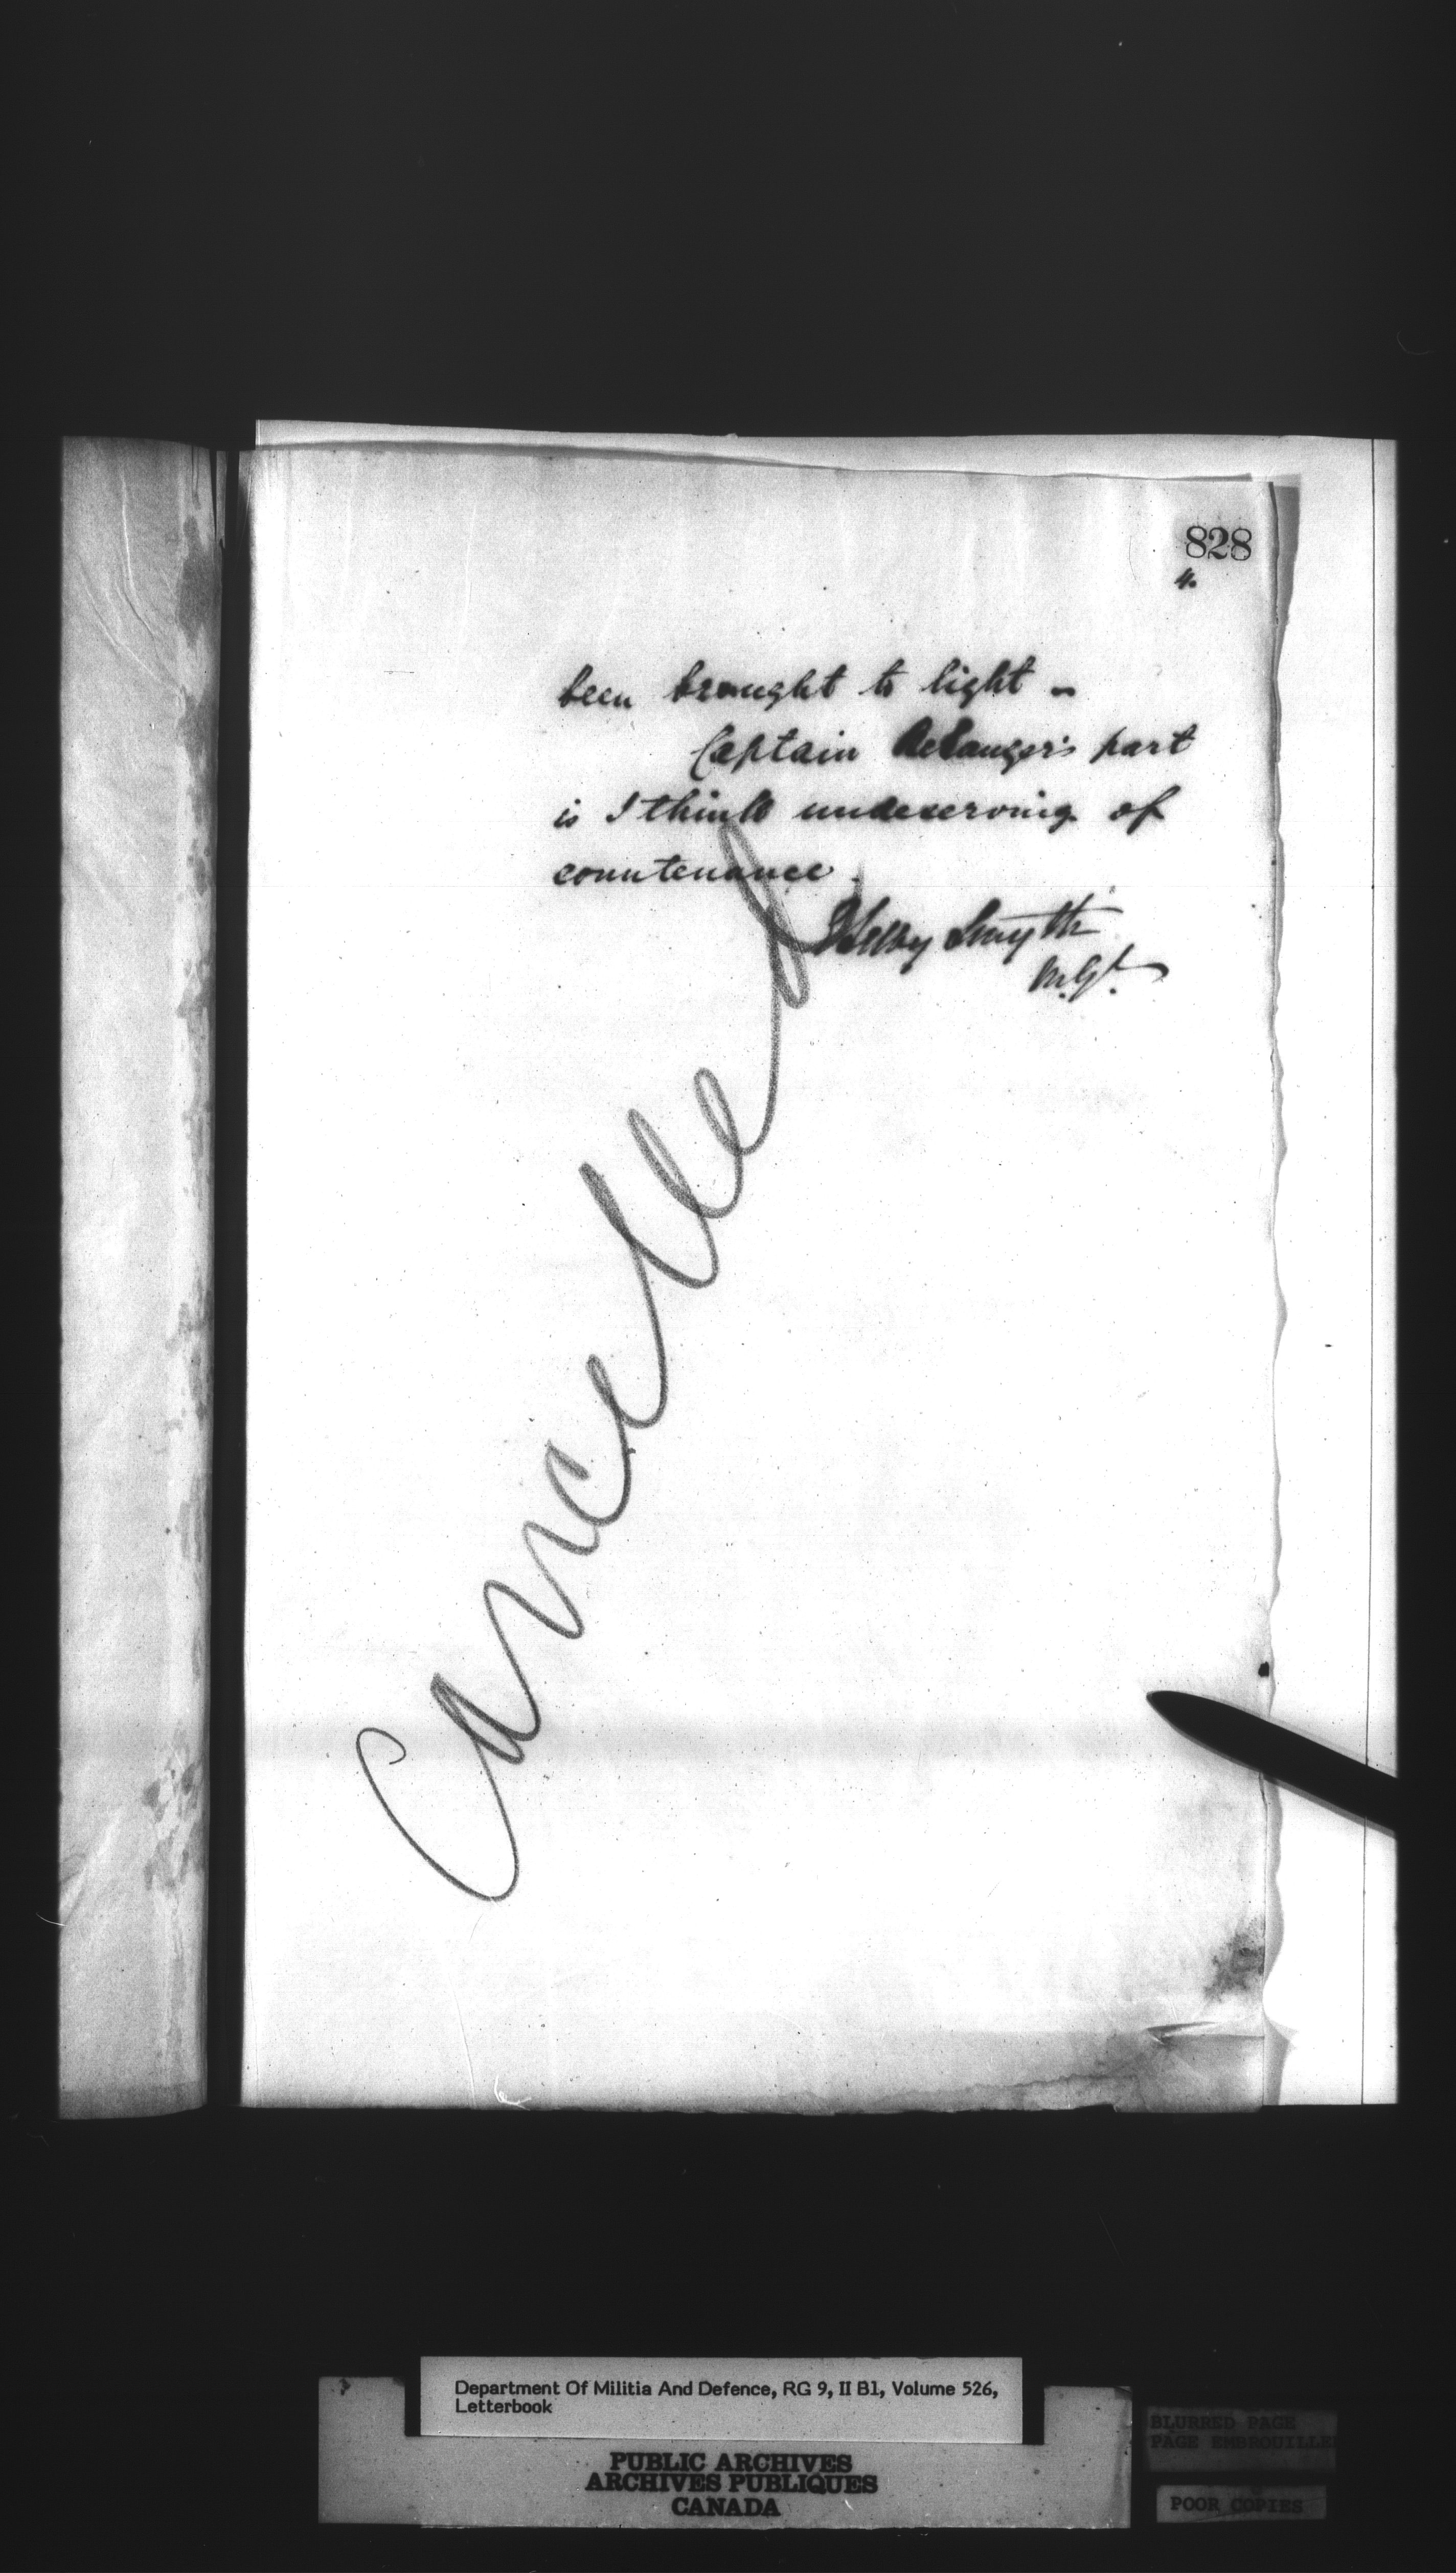 828
4.
been brought to light -
Captain Belanger's part
is I think undeserving of
countenance.
Henry Smyth
M.Gl.
Cancelled
Department Of Militia And Defence, RG 9, II B1, Volume 526,
Letterbook
PUBLIC ARCHIVES
ARCHIVES PUBLIQUES
CANADA
BLURRED PAGE
PAGE EMBROUILLE
POOR COPIES